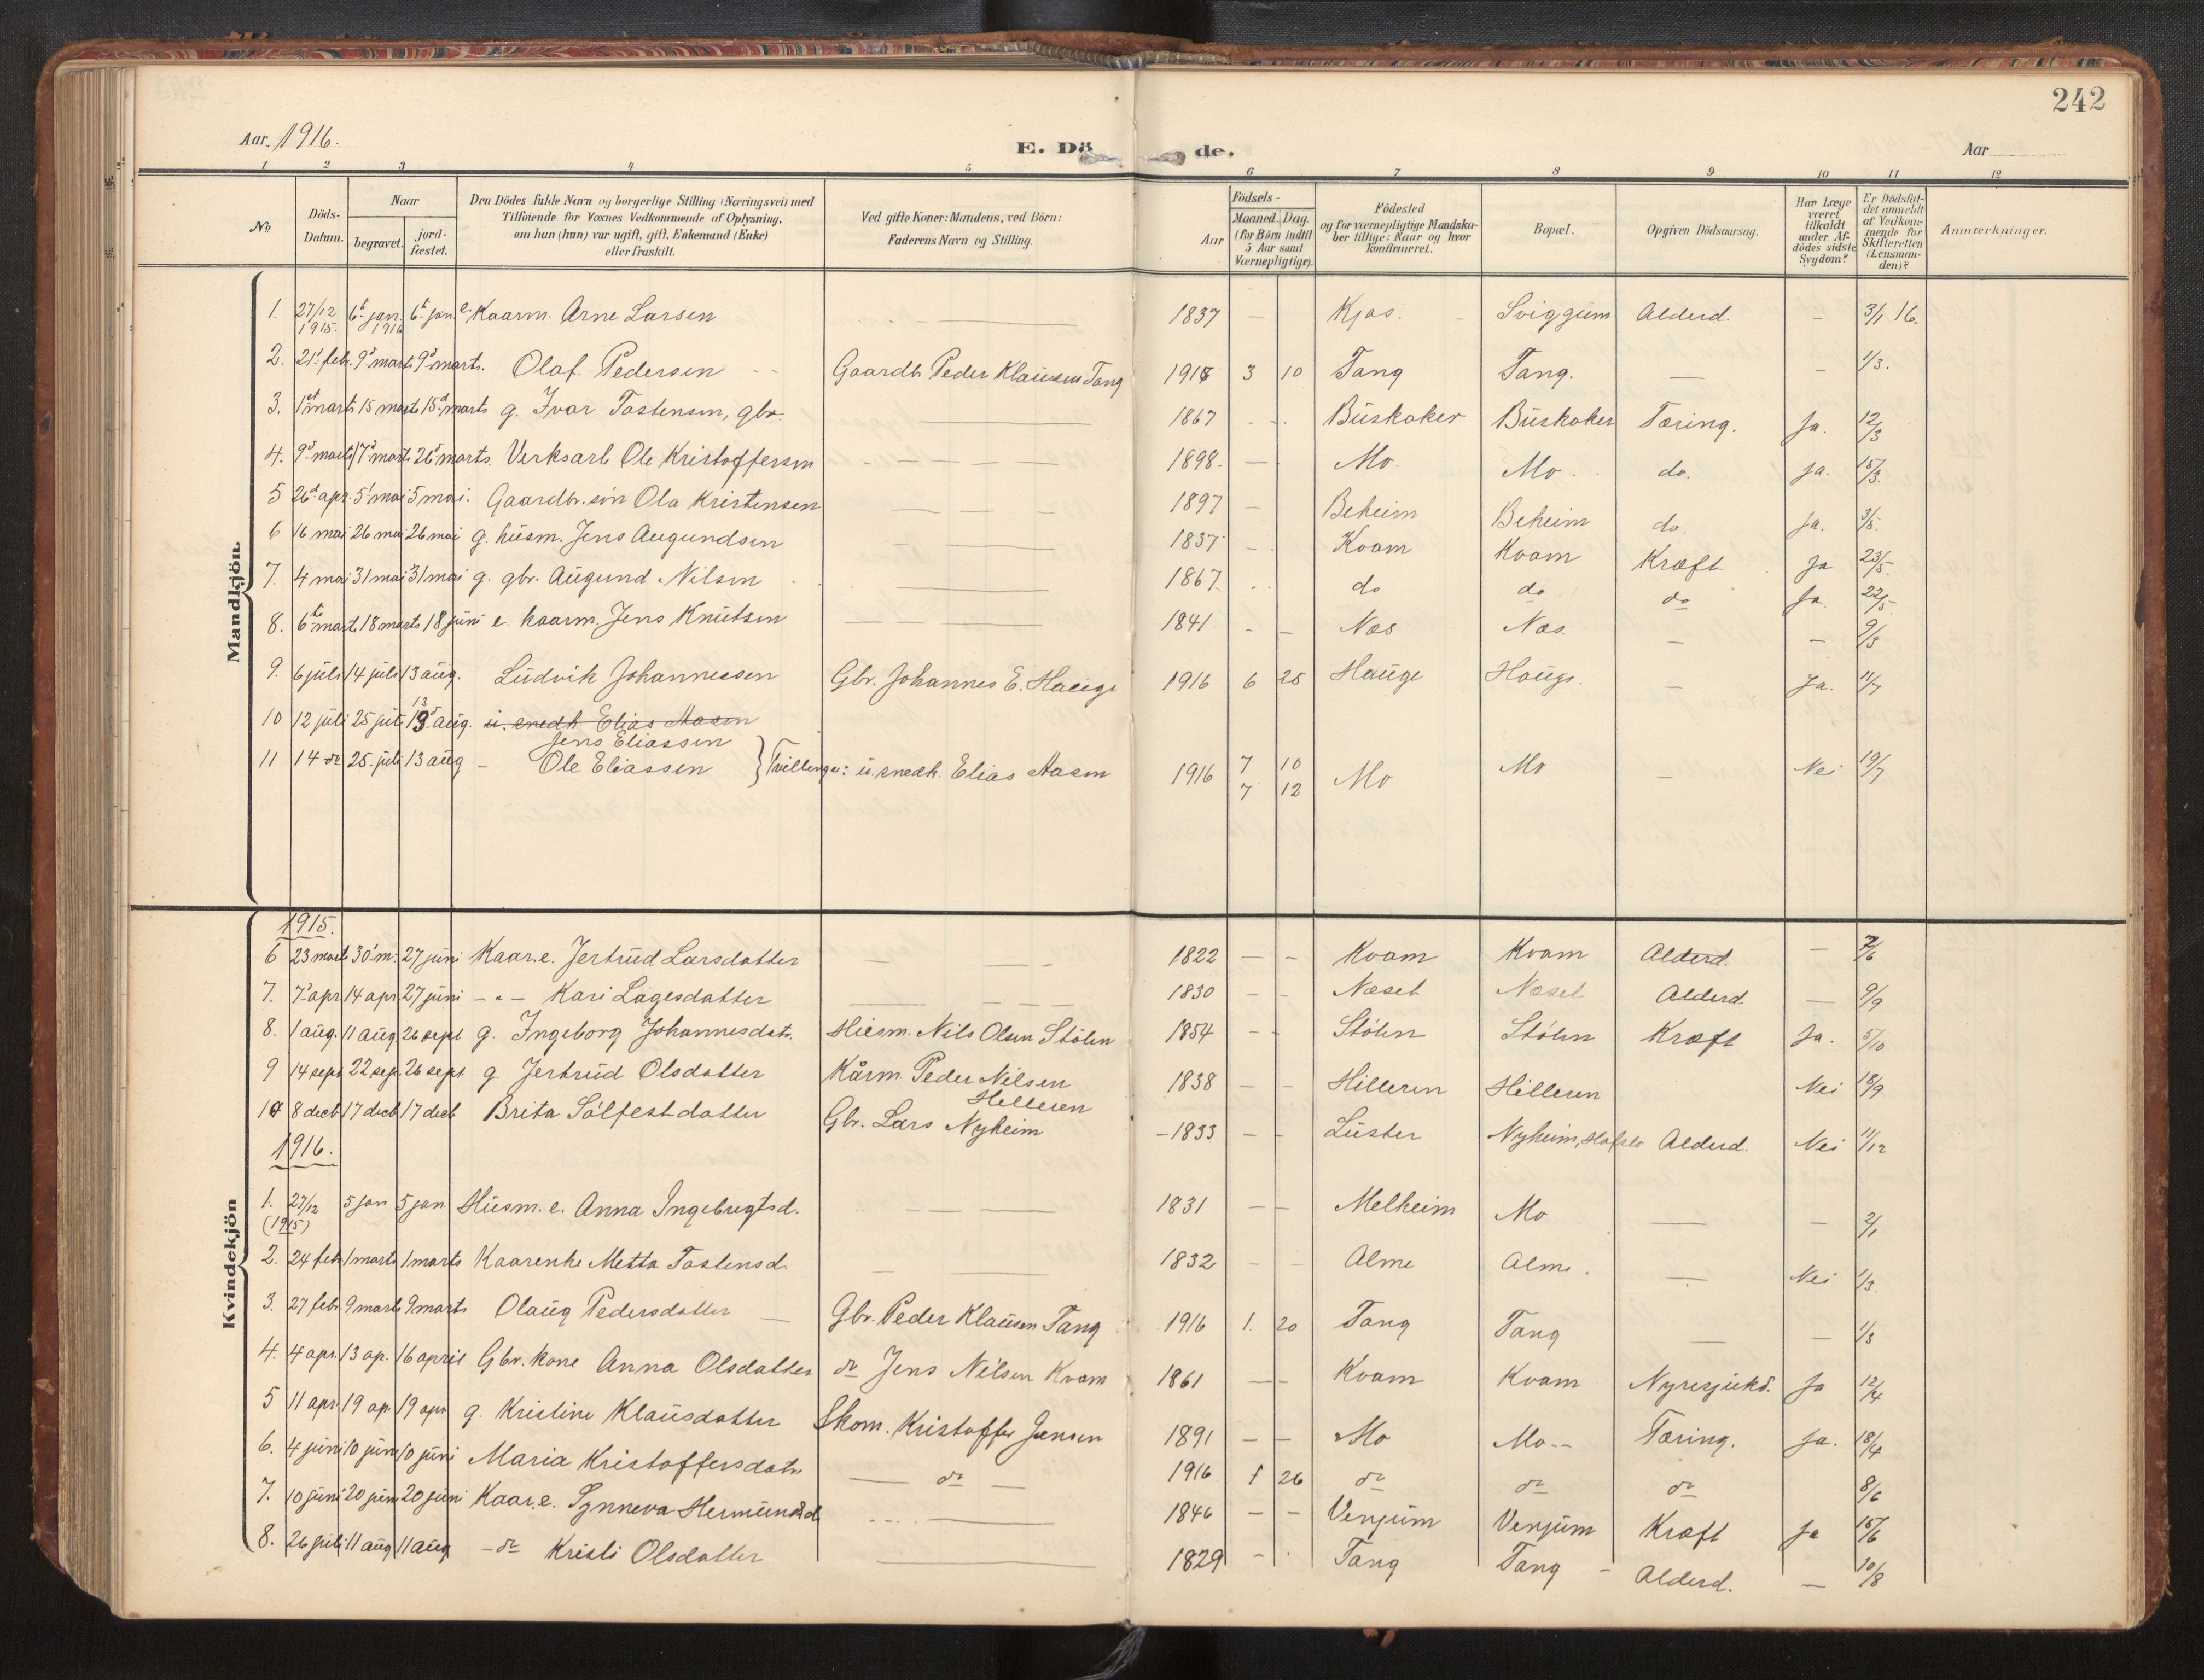 242
Aar 1916.
E. Dö de.
Aar
1 2 3 4 5 6 7 8 9 10 11 12
No
Döds-Datum.
Naar
begravet.
jord-fæstet.
Den Dödes fulde Navn og borgerlige Stilling (Næringsvei) med
Tilföiende for Voxnes Vedkommende af Oplysning,
om han (hun) var ugift, gift, Enkemand (Enke)
eller fraskilt.
Ved gifte Koner: Mandens, ved Börn:
Faderens Navn og Stilling.
Aar
Födsels-
Maaned. Dag.
(for Börn indtil
5 Aar samt
Værnepligtige).
Födested
og for værnepligtige Mandska-
ber tillige: Naar og hvor
konfirmeret.
Bopæl.
Opgiven Dödsaarsag.
Har Læge
været
tilkaldt
under Af-
dödes sidste
Sygdom?
Er Dödsfal-
det anmeldt
af Vedkom-
mende for
Skifteretten
(Lensman-
den)?
Anmærkninger.
Mandkjön.
1. 27/12 1915. 6t jan. 1916 6t jan e. Kaarm. Arne Larsen — 1837 — Kjos. Sviggum Alderd. – 3/1 16.
2. 21' feb. 9d marts 9d marts. Olaf Pedersen Gaardb. Peder Klausen Tang 1915 3 10 Tang Tang. — – 1/3.
3. 1st marts 15 marts 15d marts g. Ivar Tostensen, gbr. — 1867 Buskaker Buskaker Tæring. Ja. 12/3
4. 9d marts 17d marts 26d marts. Verksarb Ole Kristoffersen — 1898. — Mo. Mo. do. Ja. 15/3.
5 26d apr. 5' mai 5 mai. Gaardbr. sön Ola Kristensen — 1897 — Beheim Beheim do. Ja. 3/5.
6 16 mai 26 mai 26 mai g. husm. Jens Augundsen — 1837 Kvam Kvam Kræft Ja 23/5.
7. 4 mai 31 mai 31 mai g. gbr. Augund Nilsen — 1867 do do do Ja. 22/5.
8. 6te marts 18 marts 18 juni e. kaarm. Jens Knutsen — 1841 – – Næs Næs. – – 9/3
9. 6 juli 14 juli 13 aug. Ludvik Johannessen Gbr. Johannes E. Hauge 1916 6 25 Hauge Hauge. – Ja. 11/7
10 12 juli 25 juli 13 aug. u. snedk. Elias Aasen
Jens Eliassen
11 14 do 25. juli 13 aug – Ole Eliassen } Tvillinger: u. snedk. Elias Aasen 1916 7 10 Mo Mo – Nei 19/7
7 12
Kvindekjön
1915.
6 23 marts 30' m. 27 juni Kaar.e. Jertrud Larsdatter — 1822 – – Kvam Kvam Alderd. – 7/6
7. 7' apr 14 apr 27 juni – " – Kari Lagesdatter — 1830 – – Næset Næset Alderd. — 9/9
8. 1 aug. 11 aug 26 sept g. Ingeborg Johannesdatr. Husm. Nils Olsen Stölen 1854 – – Stölen Stölen Kræft Ja. 5/10
9 14 sept 22 sep. 26 sept. g. Jertrud Olsdatter Kårm. Peder Nilsen Hilleren 1838 – – Hilleren Hilleren Nei 18/9
10 8 decb 17 decb 17 decb Brita Sölfestdatter Gbr. Lars Nyheim –1833 – – Luster Nyheim, Hafslo Alderd. Nei 11/12
1916.
1. 27/12 (1915) 5 jan 5 jan. Husm. e. Anna Ingebregtsd. — 1831 – – Melheim Mo — – 2/1
2. 24 feb. 1 marts 1 marts Kaarenke Metta Tostensd. — 1832 – – Alme Alme. — Nei 1/3.
3. 27 feb. 9 marts 9 marts Olaug Pedersdatter — Gbr. Peder Klausen Tang 1916 1. 20 Tang Tang — – 1/3
4. 4 apr. 13 ap. 16 april Gbr. kone Anna Olsdatter do Jens Nilsen Kvam 1861 – – Kvam Kvam Nyresjukd. Ja 12/4
5 11 apr. 19 ap. 19 apr g. Kristine Klausdatter Skom. Kristoffer Jensen 1891 – – Mo Mo – – Tæring. Ja. 18/4
6. 4 juni 10 juni 10 juni Maria Kristoffersdatr — do — 1916 1 26 do do do 8/6
7. 10 juni 20 juni 20 juni Kaar.e. Synneva Hermundsd — 1846 – – Venjum Venjum Kræft Ja 15/6
8. 26 juli 11 aug 11 aug – do Kristi Olsdatter — 1829 – Tang Tang – Alderd. — 10/8